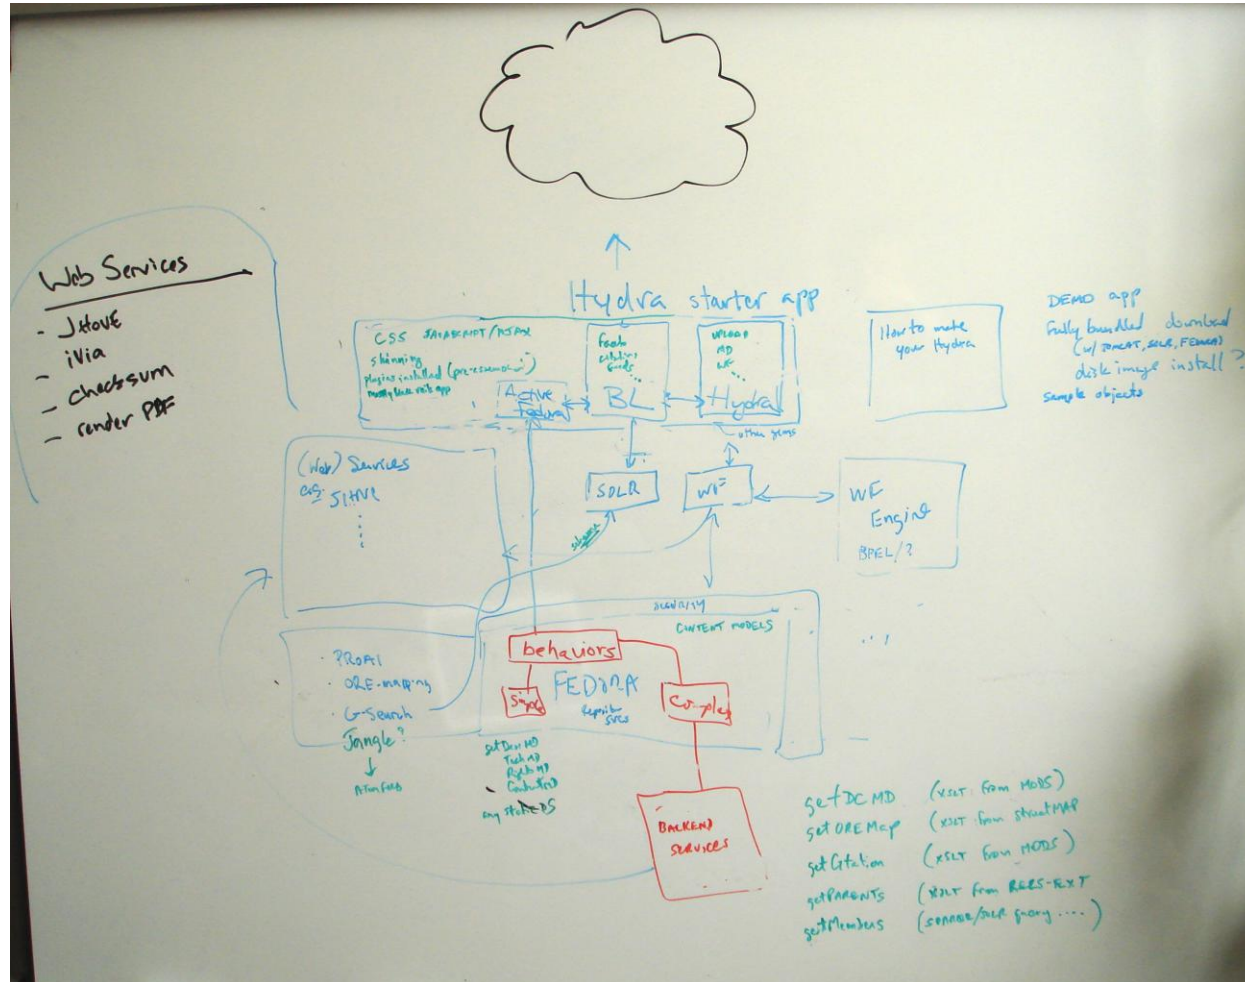 Web Services
- JHOVE
- iVia
- checksum
- render PDF
Hydra starter app
CSS JAVASCRIPT/AJAX
skinning
plugins installed
Active
BL
UPLOAD
MD
WF
Hydra
other gems
How to make
your Hydra
DEMO app
Fully bundled download
(w/ TOMCAT, SOLR, FEDORA)
disk image install?
sample objects
(Web) Services
e.g.
SOLR
WF
WF
Engine
BPEL/?
CONTENT MODELS
behaviors
FEDORA
Simple
Complex
• PROAI
• ORE-mapping
• G-Search
Jangle?
getDescMD
TechMD
RightsMD
BACKEND
SERVICES
getDCMD (XSLT from MODS)
getOREMap (XSLT from structMAP
getCitation (XSLT from MODS)
getPARENTS (XSLT from RELS-EXT
getMembers query ....)